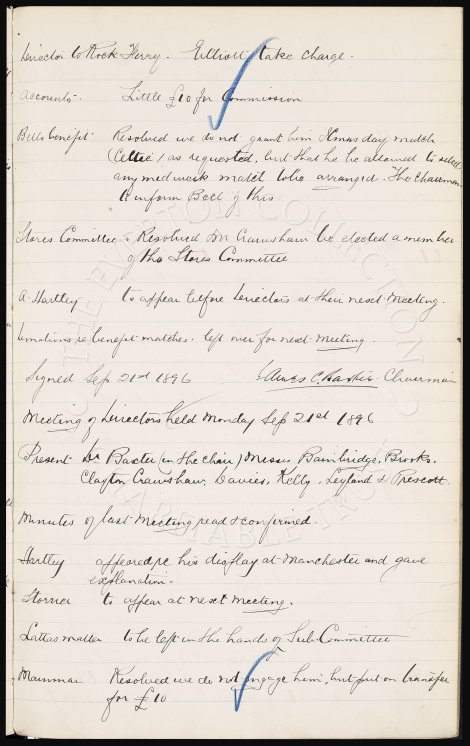 Director to Rock Ferry. Elliott take charge.
Accounts. Little £10 for Commission
Bells benefit. Resolved we do not grant him Xmas day match
(Celtic) as requested, but that he be allowed to select
any mid week match to be arranged. The Chairman
to inform Bell of this
Stores Committee. Resolved Mr Crawshaw be elected a member
of the Stores Committee
A. Hartley to appear before Directors at their next meeting.
Donations re benefit matches. left over for next Meeting.
Signed Sep 21st 1896 James C. Baxter Chairman
Meeting of Directors held Monday Sep 21st 1896
Present Dr Baxter (in the chair) Messrs Bainbridge, Brooks,
Clayton Crawshaw, Davies, Kelly, Leyland & Prescott.
Minutes of last Meeting read & confirmed.
Hartley appeared re his display at Manchester and gave
explanation.
Storrier to appear at next meeting.
Lattas matter to be left in the hands of Sub Committee
Resolved we do not engage him, but put on transfer
for £10
THE EVERTON COLLECTION
CHARITABLE TRUST